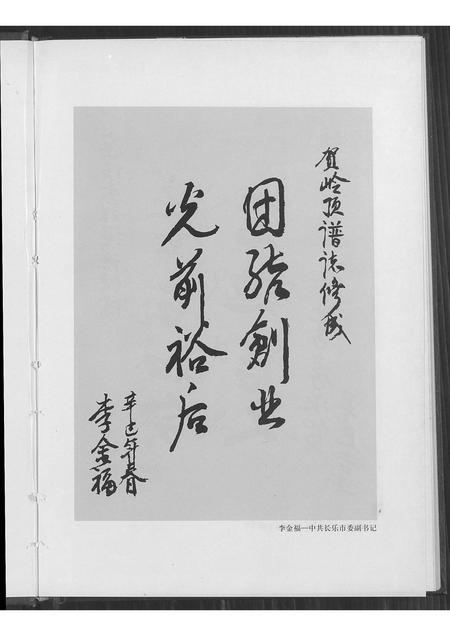 贺岭顶谱志修成
团结創业
光前裕后
辛巳年春
李金福
李金福—中共长乐市委副书记